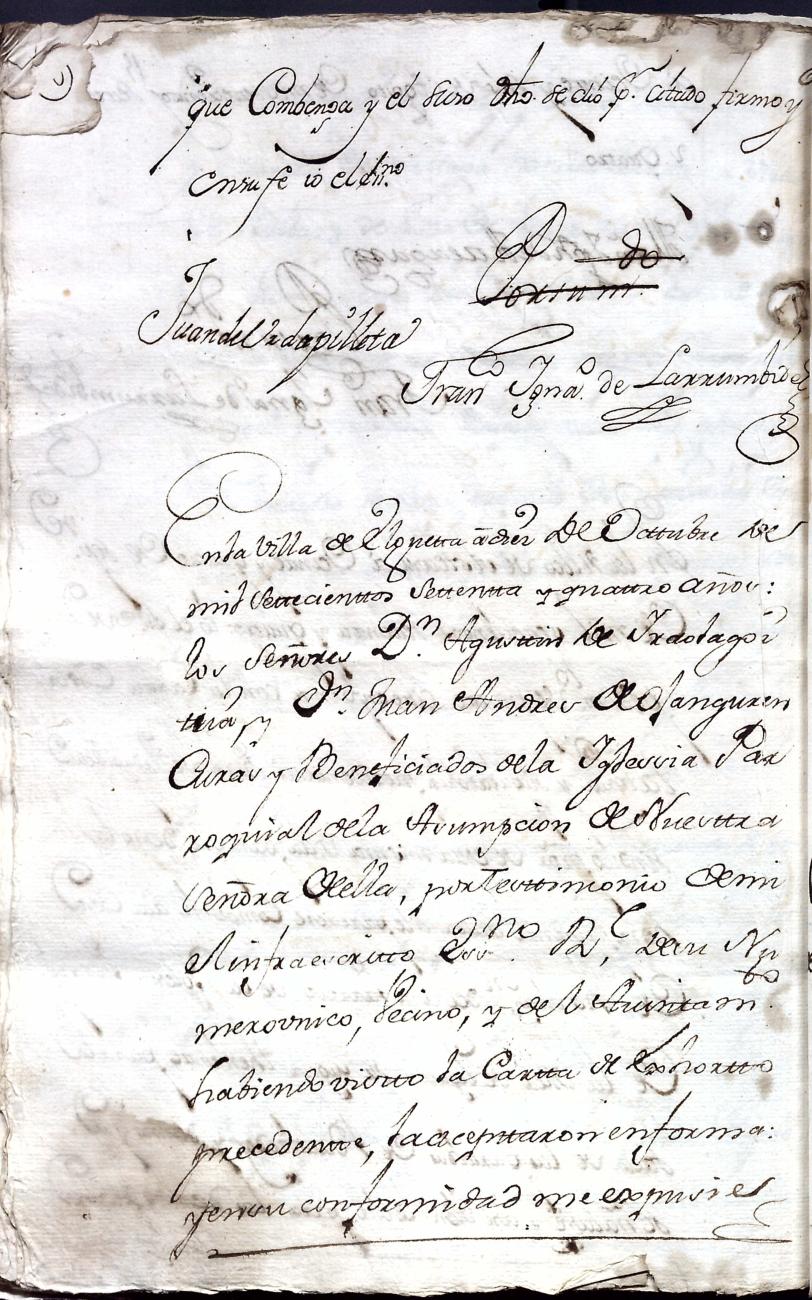 que Combenga y el suso dho. se dio pr. citado firmo y
en su fe io el Sno
Juan de
Fran.co Igna.o de Larrumbide
En la Villa de Elgueta a diez de Octtubre de
mil settecienttos settentta y quattro años:
los señores Dn. Agusttin de Iraolagoi
tia, y Dn. Juan Andres de Osanguren
Curas y Beneficiados de la Iglessia Par
roquial de la Asumpcion de Nuesttra
señora de ella, por testtimonio de mi
el infraescritto Essno. Rl, de su Nu
mero vnico, vecino, y del Aiuntamto.
habiendo vistto la Cartta de Exhortto
precedentte, la aceptaron en forma:
y en su conformidad me expusie